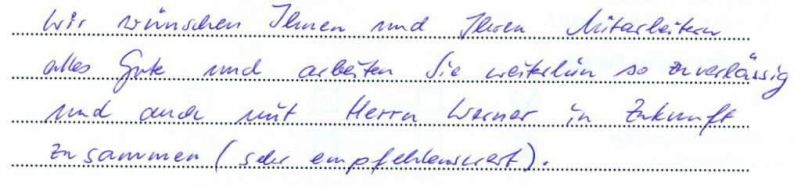 Wir wünschen Ihnen und Ihren Mitarbeitern
alles Gute und arbeiten Sie weiterhin so zuverlässig
und auch mit Herrn Werner in Zukunft
zusammen (sehr empfehlenswert).